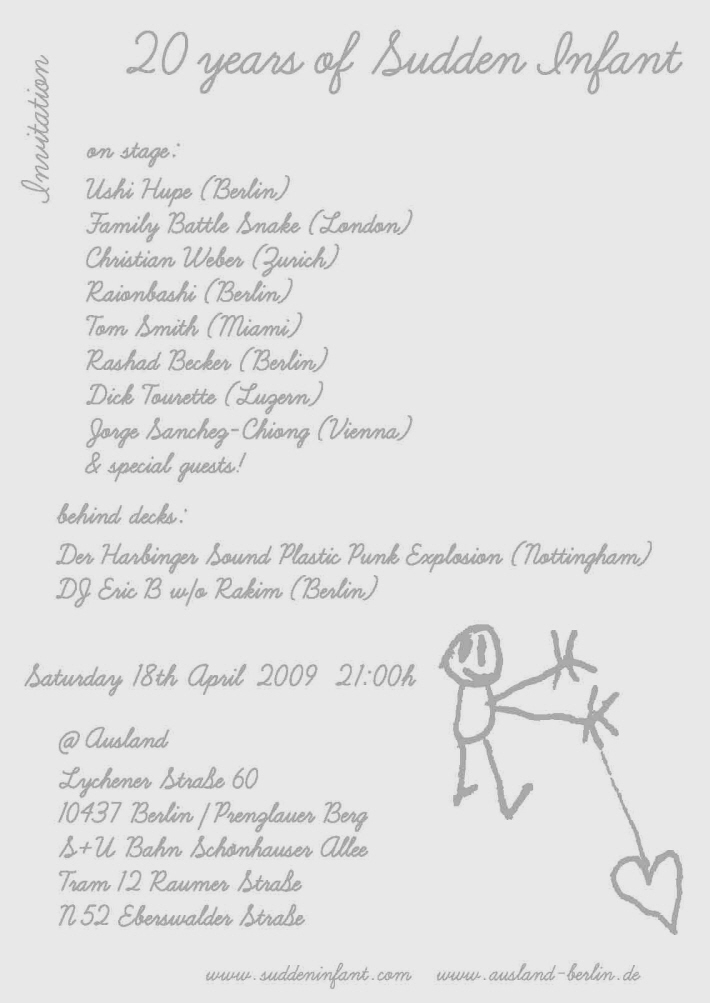 Invitation
20 years of Sudden Infant
on stage:
Ushi Hupe (Berlin)
Family Battle Snake (London)
Christian Weber (Zurich)
Raionbashi (Berlin)
Tom Smith (Miami)
Rashad Becker (Berlin)
Dick Tourette (Luzern)
Jorge Sanchez-Chiong (Vienna)
& special guests!
behind decks:
Der Harbinger Sound Plastic Punk Explosion (Nottingham)
DJ Eric B w/o Rakim (Berlin)
Saturday 18th April 2009 21:00h
@ Ausland
Lychener Straße 60
10437 Berlin / Prenzlauer Berg
S+U Bahn Schönhauser Allee
Tram 12 Raumer Straße
N52 Eberswalder Straße
www.suddeninfant.com www.ausland-berlin.de